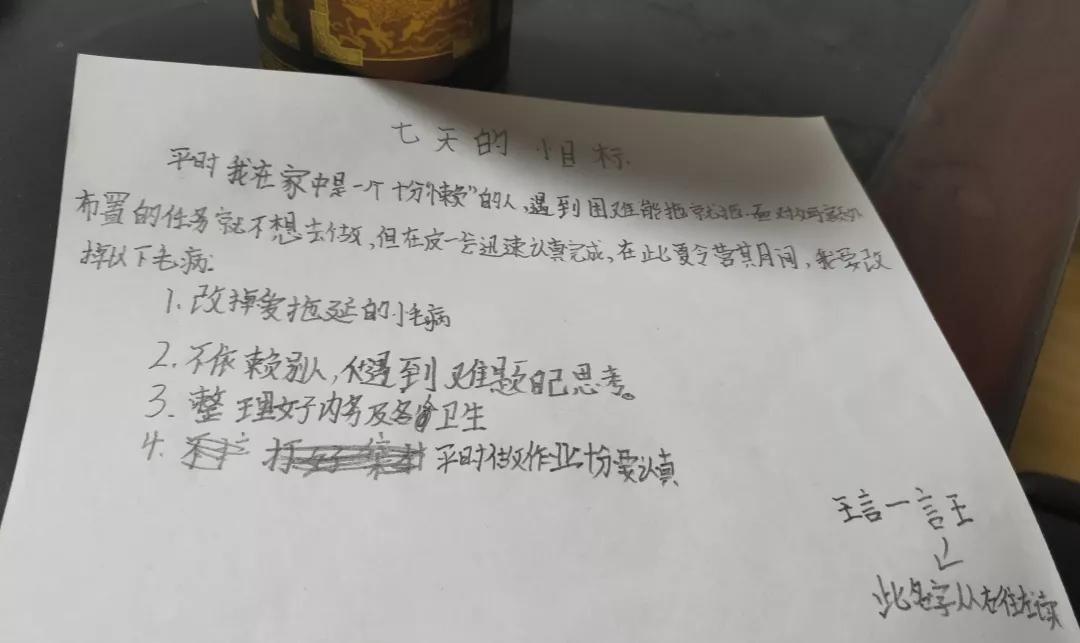 七天的小目标
平时我在家中是一个十分"懒"的人,遇到困难能拖就拖.面对
布置的任务就不想去做,但在这一会迅速认真完成,在此夏令营其月间,我要改
掉以下毛病:
1.改掉爱拖延的小毛病
2.不依赖别人,做遇到难题自己思考。
3.整理好内务及各卫生
4.平时做作业十分要认真
王言一言王
此名字从右往左读